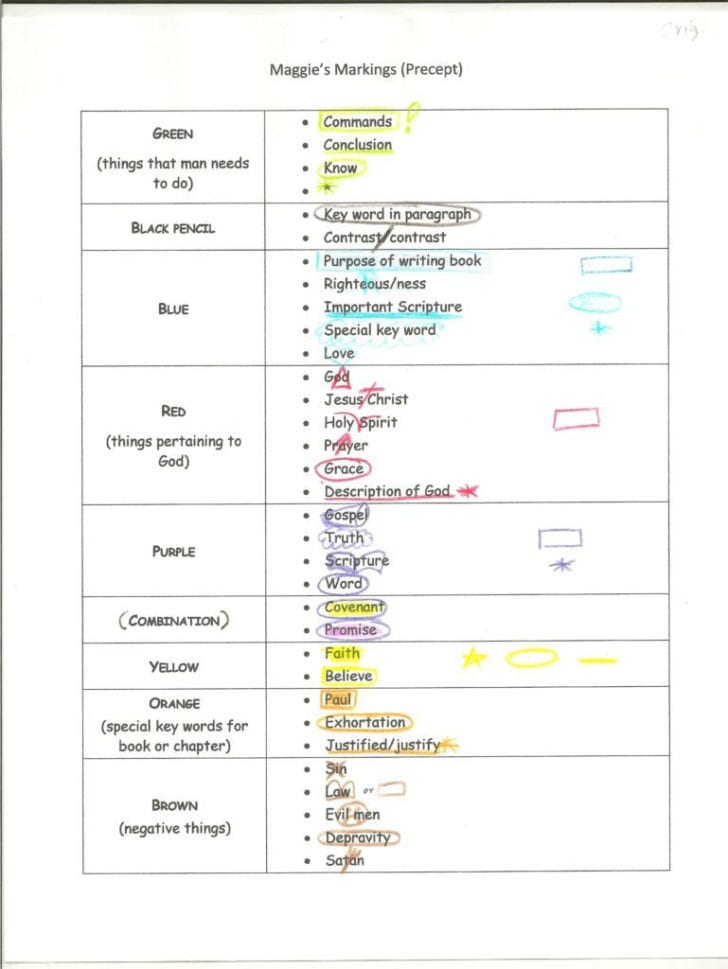 Orig.
Maggie's Markings (Precept)
GREEN
(things that man needs
to do)
Commands !
Conclusion
Know
BLACK PENCIL
Key word in paragraph
Contrast/contrast
BLUE
Purpose of writing book
Righteous/ness
Important Scripture
Special key word
Love
RED
(things pertaining to
God)
God
Jesus/Christ
Holy Spirit
Prayer
Grace
Description of God
PURPLE
Gospel
Truth
Scripture
Word
(COMBINATION)
Covenant
Promise
YELLOW
Faith
Believe
ORANGE
(special key words for
book or chapter)
Paul
Exhortation
Justified/justify
BROWN
(negative things)
Sin
Law or
Evil men
Depravity
Satan